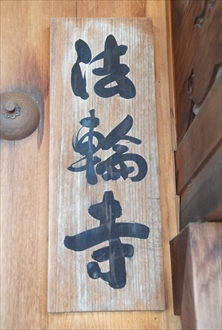 法輪寺